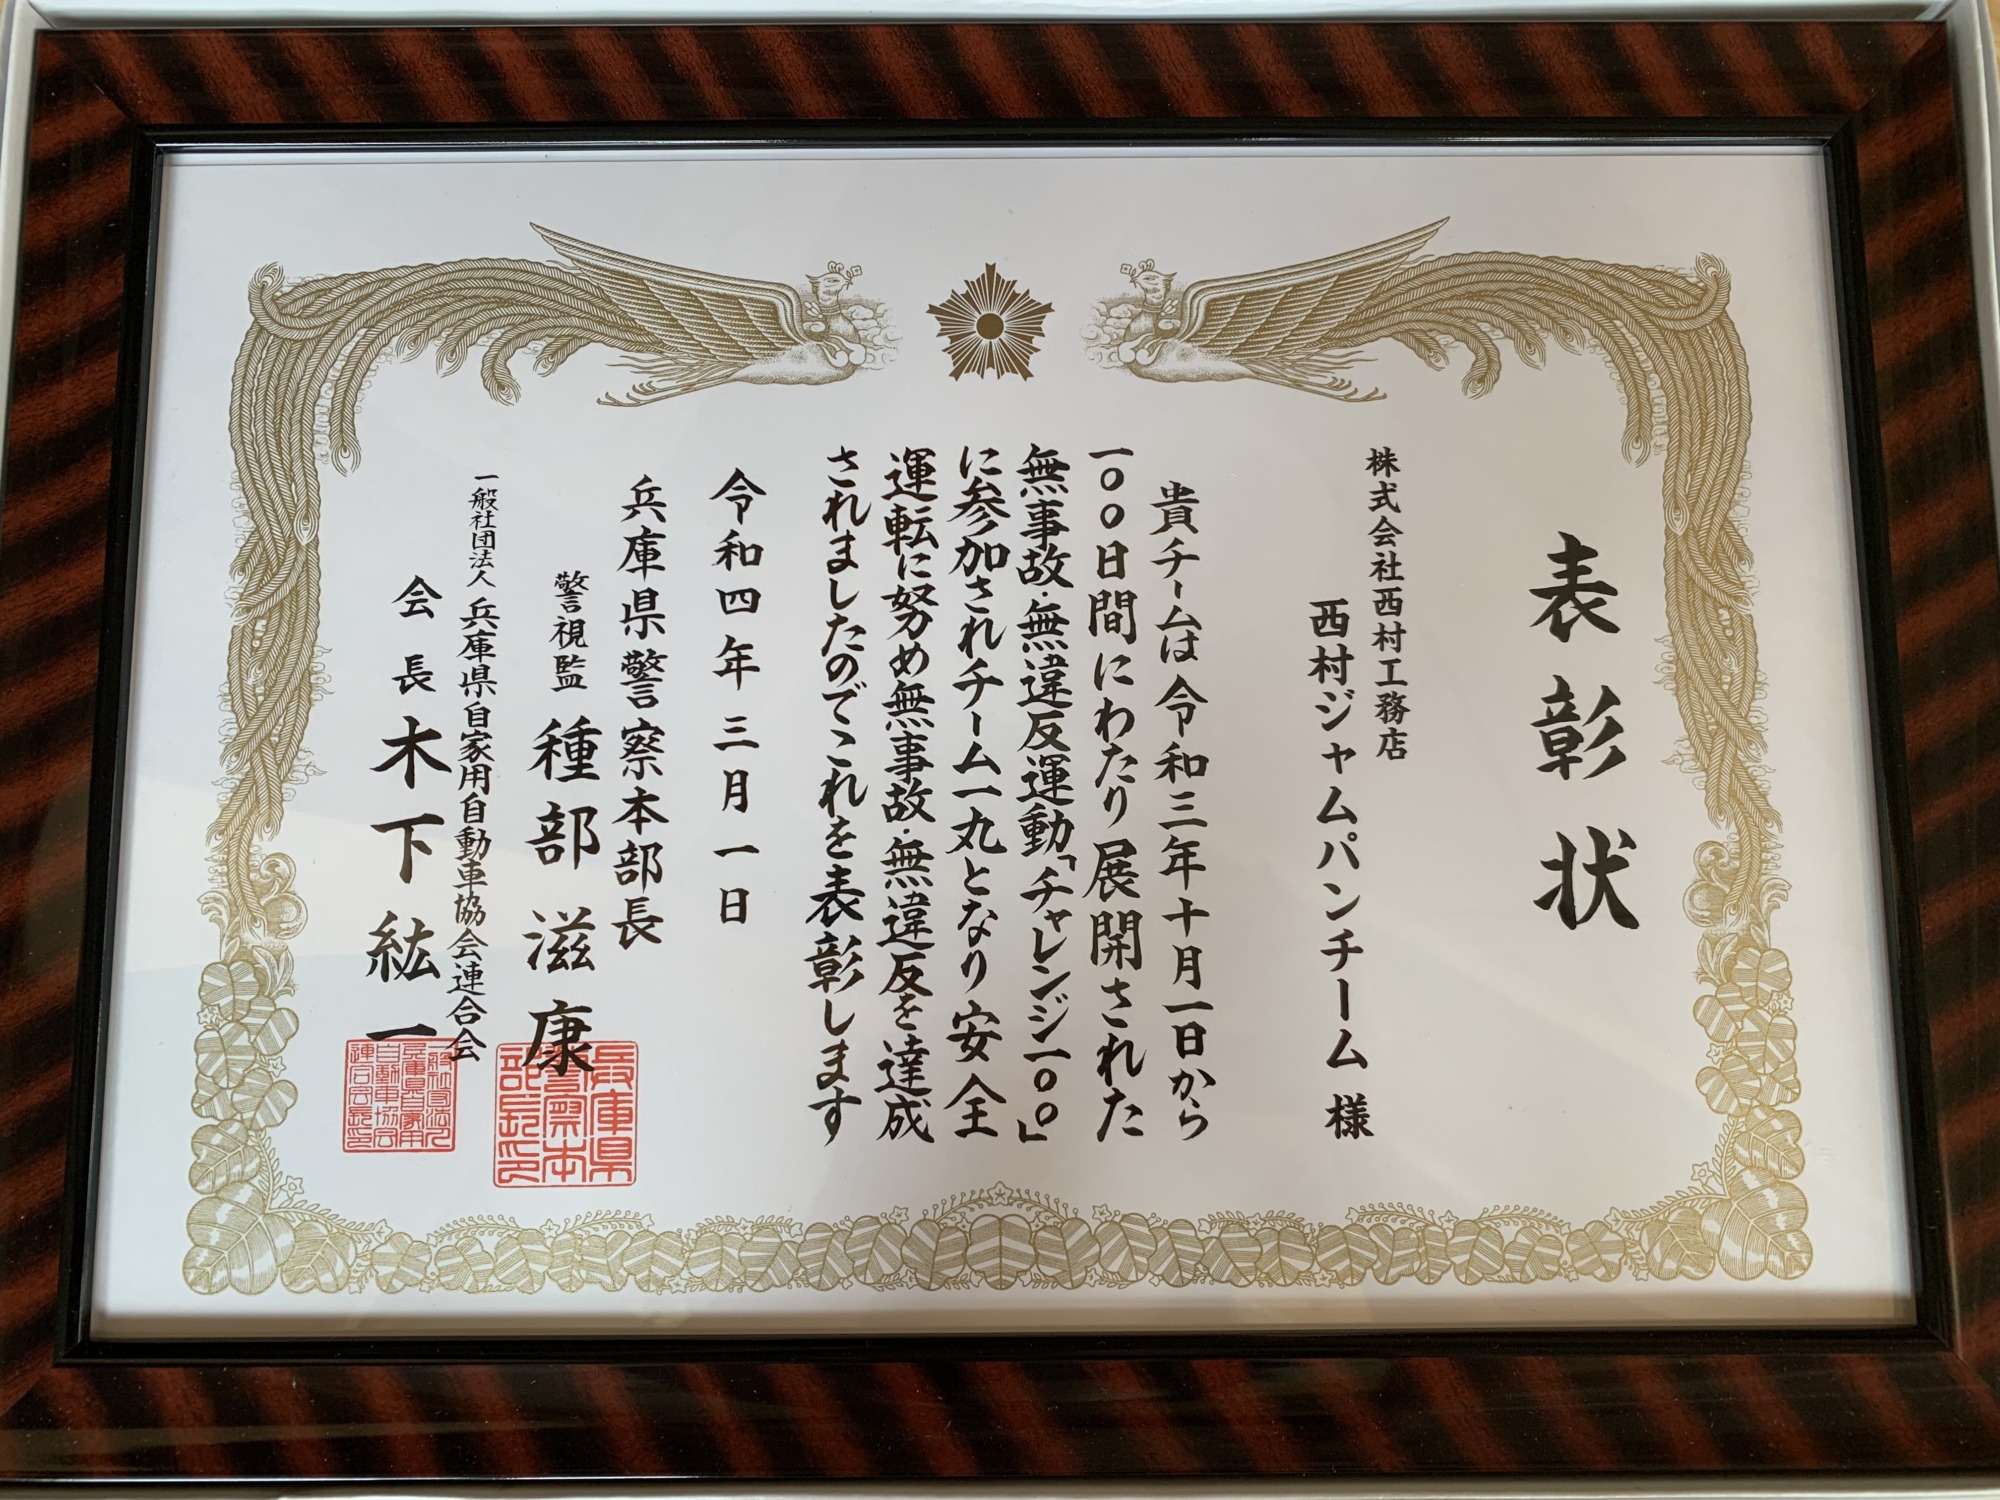 表彰状
株式会社西村工務店
西村ジャムパンチーム 様
貴チームは令和三年十月一日から
一〇〇日間にわたり展開された
無事故・無違反運動「チャレンジ一〇〇」
に参加されチーム一丸となり安全
運転に努め無事故・無違反を達成
されましたのでこれを表彰します
令和四年三月一日
兵庫県警察本部長
警視監 種部滋康
兵庫県警察本部長印
一般社団法人 兵庫県自家用自動車協会連合会
会長 木下紘一
一般社団法人兵庫県自家用自動車協会連合会長印